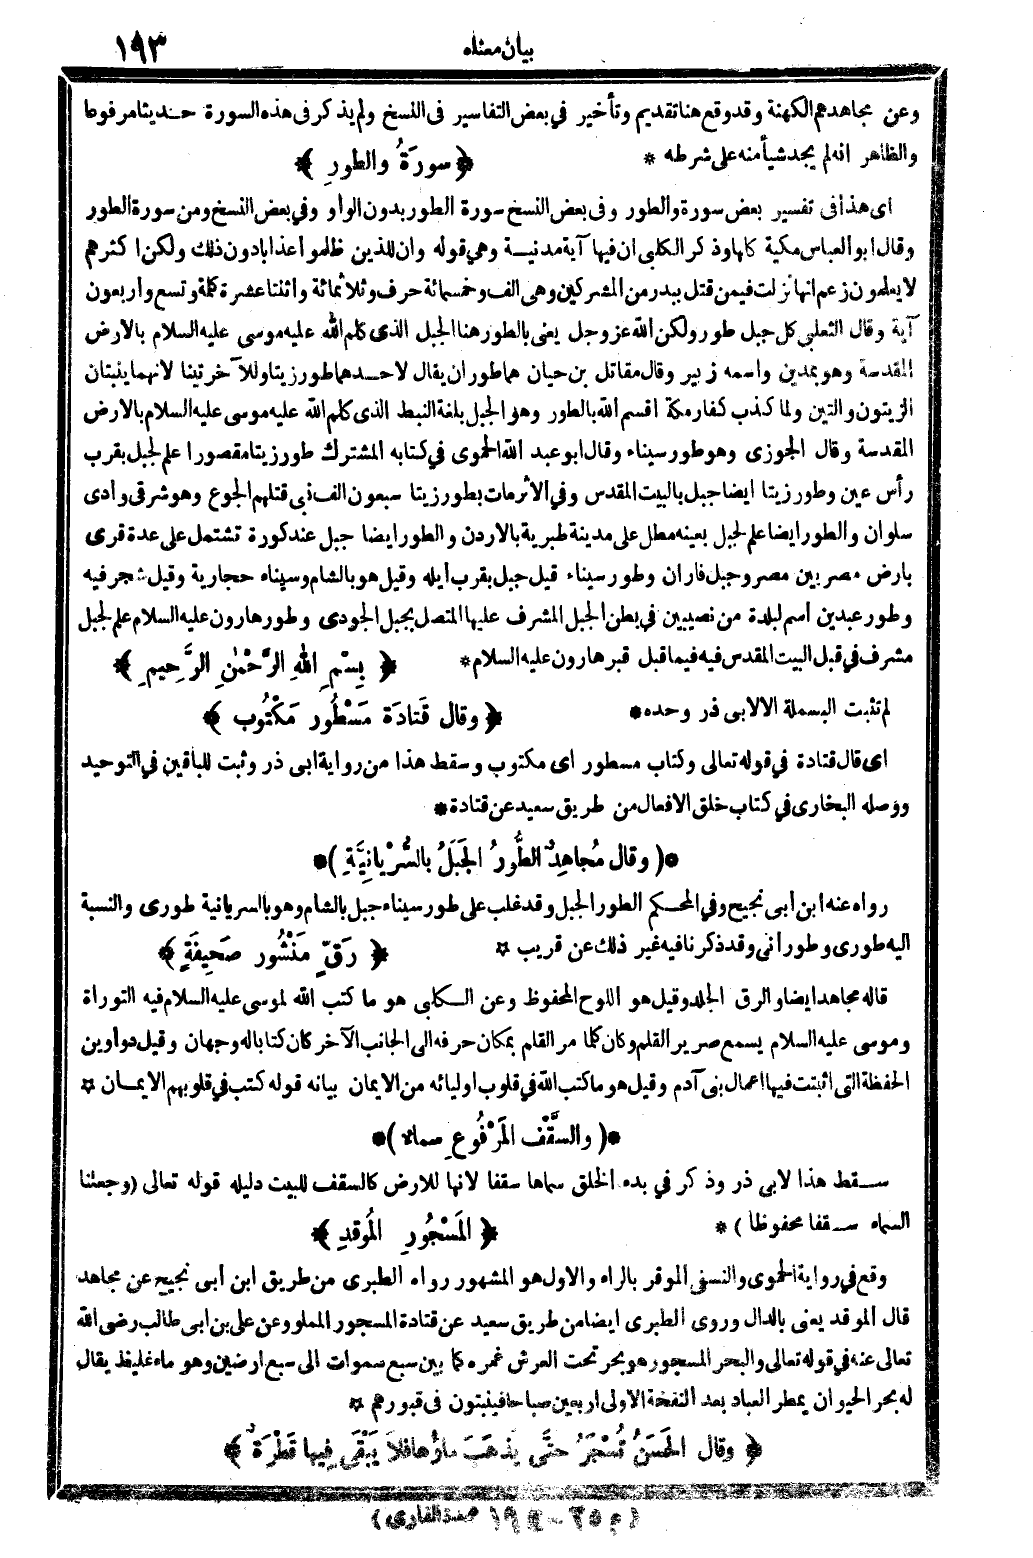 بيان معناه
١٩٣
وعن مجاهد هم الكهنة وقد وقع هنا تقديم وتأخير في بعض التفاسير فى النسخ ولم يذكر فى هذه السورة حديثا مرفوعا
والظاهر انه لم يجد شيأ منه على شرطه *
﴿ سورَةُ والطورِ ﴾
اى هذا فى تفسير بعض سورة والطور وفى بعض النسخ سورة الطور بدون الواو وفي بعض النسخ ومن سورة الطور
وقال ابو العباس مكية كلها وذكر الكلبى ان فيها آية مدنية وهي قوله وان للذين ظلموا عذابا دون ذلك ولكن اكثرهم
لا يعلمون زعم انها نزلت فيمن قتل ببدر من المشركين وهى الف وخمسمائة حرف وثلاثمائة واثنتا عشرة كلمة وتسع واربعون
آية وقال الثعلبي كل جبل طور ولكن الله عز وجل يعنى بالطور هنا الجبل الذى كلم الله عليه موسى عليه السلام بالارض
المقدسة وهو بمدين واسمه زبير وقال مقاتل بن حيان هما طوران يقال لاحدهما طور زيتا وللآخر تينا لانهما ينبتان
الزيتون والتين ولما كذب كفار مكة اقسم الله بالطور وهو الجبل بلغة النبط الذى كلم الله عليه موسى عليه السلام بالارض
المقدسة وقال الجوزى وهو طور سيناء وقال ابو عبد الله الحموى في كتابه المشترك طور زيتا مقصورا علم لجبل بقرب
رأس عين وطور زيتا ايضا جبل بالبيت المقدس وفي الأثر مات بطور زيتا سبعون الف نبى قتلهم الجوع وهو شرقى وادى
سلوان والطور ايضا علم لجبل بعينه مطل على مدينة طبرية بالاردن والطور ايضا جبل عند كورة تشتمل على عدة قرى
بارض مصر بين مصر وجبل فاران وطور سيناء قيل جبل بقرب ايله وقيل هو بالشام وسيناء حجارية وقيل شجر فيه
وطور عبدين اسم لبلدة من نصيبين في بطن الجبل المشرف عليها المتصل بجبل الجودى وطور هارون عليه السلام علم لجبل
مشرف في قبل البيت المقدس فيه فيما قبل قبر هارون عليه السلام *
﴿ بِسْمِ اللهِ الرَّحْمٰنِ الرَّحِيمِ ﴾
لم تثبت البسملة الا لابى ذر وحده *
﴿ وقال قَتادَة مَسْطُور مَكْتُوب ﴾
اى قال قتادة في قوله تعالى وكتاب مسطور اى مكتوب وسقط هذا من رواية ابى ذر وثبت للباقين في التوحيد
ووصله البخارى في كتاب خلق الافعال من طريق سعيد عن قتادة *
*( وقال مُجاهِدٌ الطُّورُ الجَبَلُ بالسُّرْيانِيَّةِ )*
رواه عنه ابن أبى نجيح وفي المحكم الطور الجبل وقد غلب على طور سيناء جبل بالشام وهو بالسريانية طورى والنسبة
اليه طورى وطورانى وقد ذكرنا فيه غير ذلك عن قريب *
﴿ رَقٍّ مَنْشُور صَحِيفَةٍ ﴾
قاله مجاهد ايضا والرق الجلد وقيل هو اللوح المحفوظ وعن الكلبى هو ما كتب الله لموسى عليه السلام فيه التوراة
وموسى عليه السلام يسمع صرير القلم وكان كلما مر القلم بمكان حرفه الى الجانب الآخر كان كتابا له وجهان وقيل دواوين
الحفظة التى اثبتت فيها اعمال بنى آدم وقيل هو ما كتب الله في قلوب اوليائه من الايمان بيانه قوله كتب في قلوبهم الايمان *
*( والسَّقْف المَرْفُوعِ سماء )*
سقط هذا لابى ذر وذكر في بدء الخلق سماها سقفا لانها للارض كالسقف للبيت دليله قوله تعالى (وجعلنا
السماء سقفا محفوظا ) *
﴿ المَسْجُورِ المُوقدِ ﴾
وقع في رواية الحموى والنسفى الموقر بالراء والاول هو المشهور رواه الطبرى من طريق ابن أبى نجيح عن مجاهد
قال الموقد يعنى بالدال وروى الطبرى ايضا من طريق سعيد عن قتادة المسجور المملو وعن على بن ابى طالب رضى الله
تعالى عنه في قوله تعالى والبحر المسجور هو بحر تحت العرش غمره كما بين سبع سموات الى سبع ارضين وهو ماء غليظ يقال
له بحر الحيوان يمطر العباد بعد النفخة الاولى اربعين صباحا فينبتون فى قبورهم *
﴿ وقال الحَسَنُ تُسْجَرُ حتَّى يَذهَبَ ماؤُها فلاَ يَبْقَى فِيها قَطْرَةٌ ﴾
(م ٢٥ - ج ١٩ عمدة القارى)